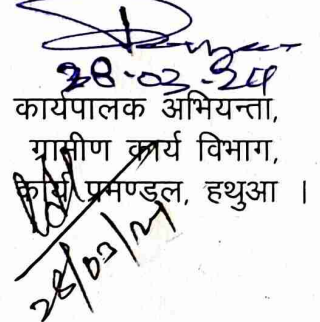 28-03-24
कार्यपालक अभियन्ता,
ग्रामीण कार्य विभाग,
कार्य प्रमण्डल, हथुआ ।
28/03/24